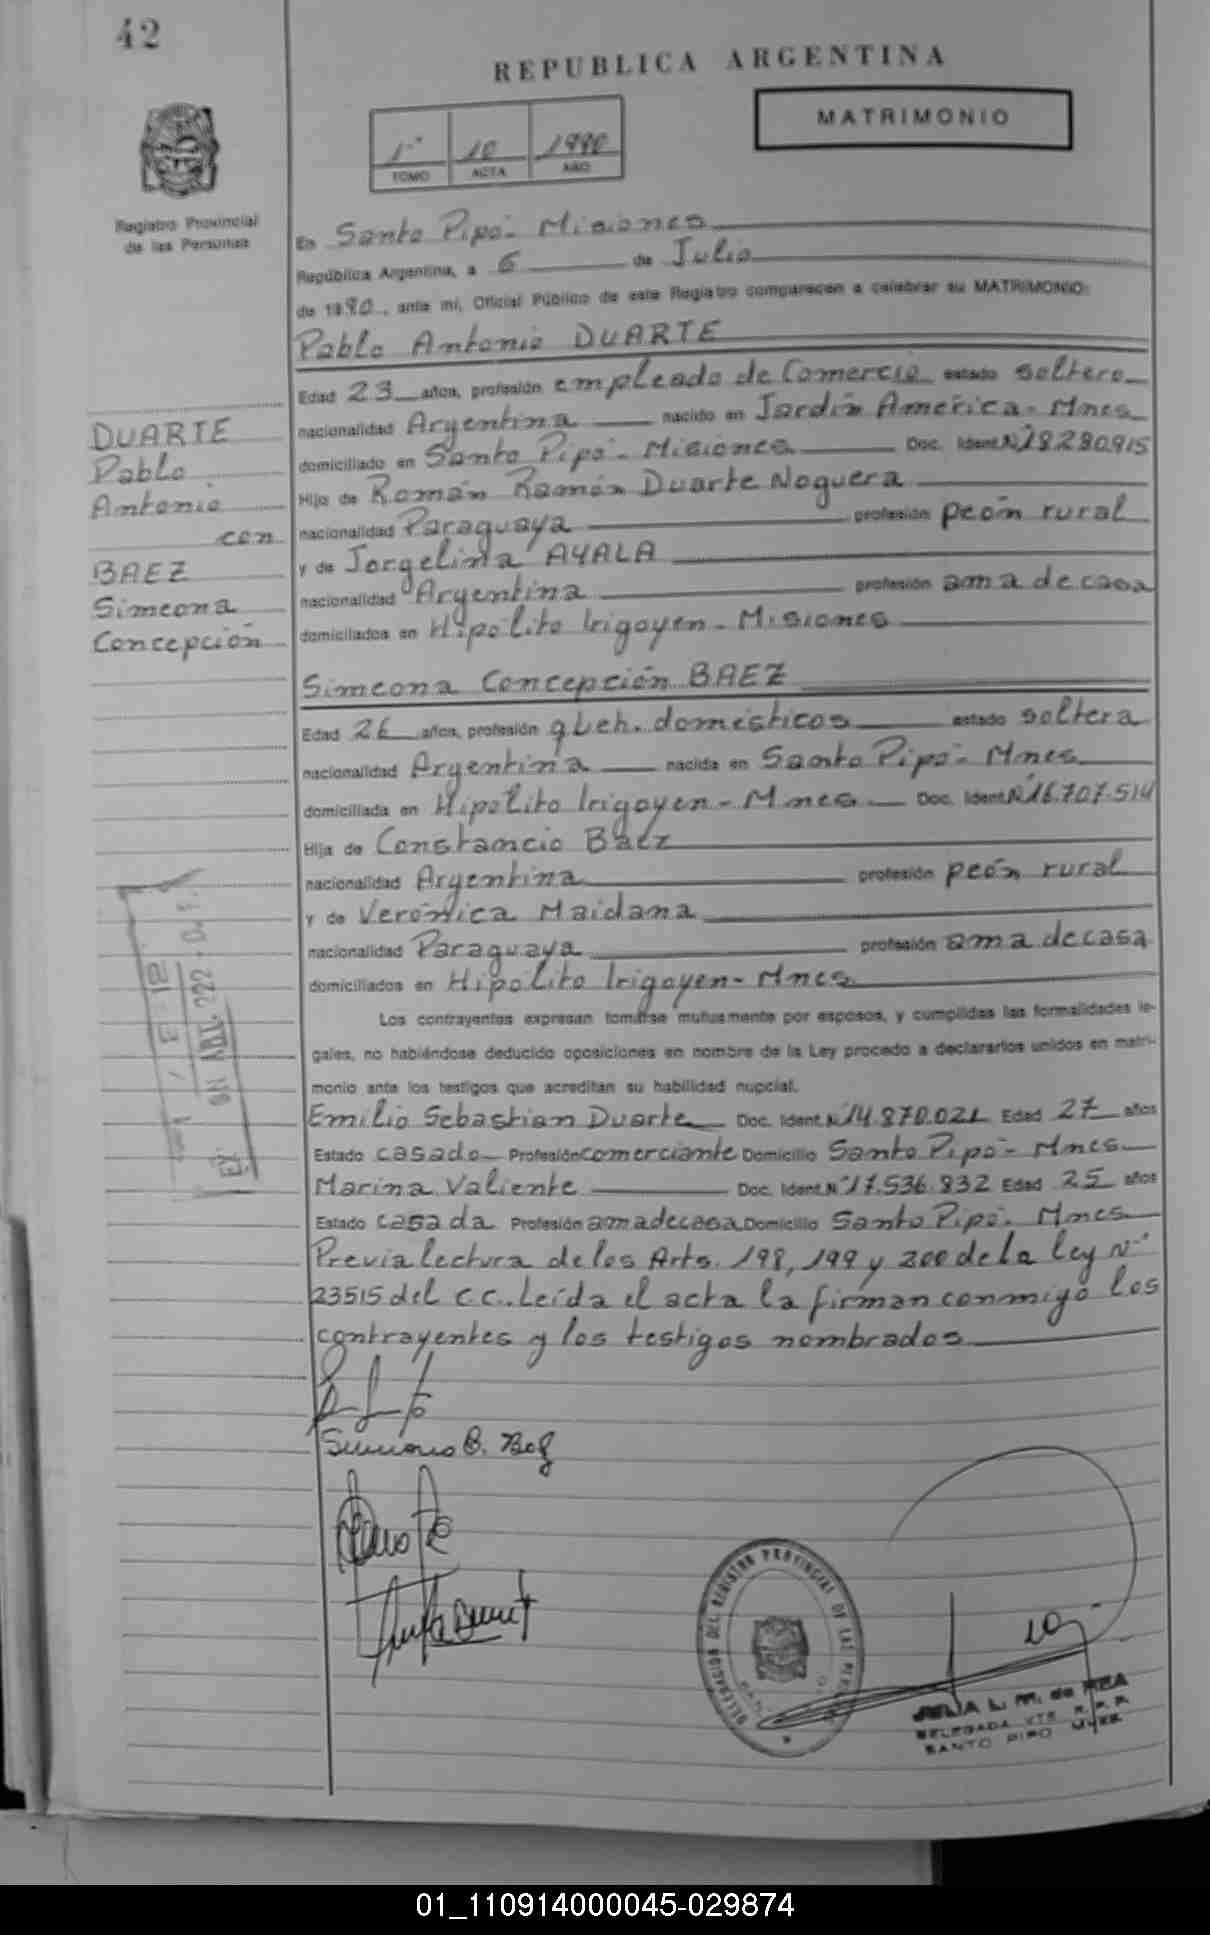 42
REPUBLICA ARGENTINA
MATRIMONIO
1° 10 1990
TOMO ACTA AÑO
Registro Provincial
de las Personas
En Santo Pipó - Misiones
República Argentina, a 6 de Julio
de 1990, ante mí, Oficial Público de este Registro comparecen a celebrar su MATRIMONIO:
Pablo Antonio DUARTE
Edad 23 años, profesión empleado de Comercio estado soltero
nacionalidad Argentina nacido en Jardín América - Mnes
domiciliado en Santo Pipó - Misiones Doc. Ident. N° 18.280.915
Hijo de Román Ramón Duarte Noguera
nacionalidad Paraguaya profesión peón rural
y de Jorgelina AYALA
nacionalidad Argentina profesión ama de casa
domiciliados en Hipólito Irigoyen - Misiones
DUARTE
Pablo
Antonio
con
BAEZ
Simeona
Concepción
Simeona Concepción BAEZ
Edad 26 años, profesión queh. domésticos estado soltera
nacionalidad Argentina nacida en Santo Pipó - Mnes
domiciliada en Hipólito Irigoyen - Mnes Doc. Ident. N° 16.707.514
Hija de Constancio Baez
nacionalidad Argentina profesión peón rural
y de Verónica Maidana
nacionalidad Paraguaya profesión ama de casa
domiciliados en Hipólito Irigoyen - Mnes
Los contrayentes expresan tomarse mutuamente por esposos, y cumplidas las formalidades le-
gales, no habiéndose deducido oposiciones en nombre de la Ley procedo a declararlos unidos en matri-
monio ante los testigos que acreditan su habilidad nupcial.
Emilio Sebastian Duarte Doc. Ident. N° 14.870.021 Edad 27 años
Estado casado Profesión comerciante Domicilio Santo Pipó - Mnes
Marina Valiente Doc. Ident. N° 17.536.832 Edad 25 años
Estado casada Profesión ama de casa Domicilio Santo Pipó. Mnes
Previa lectura de los Arts. 198, 199 y 200 de la ley N°
23515 del C.C.. Leída el acta la firman conmigo los
contrayentes y los testigos nombrados
ART. 222
DELEGACION DEL REGISTRO PROVINCIAL DE LAS
JULIA L. M. de REA
DELEGADA R. P. P.
SANTO PIPO MNES
01_110914000045-029874